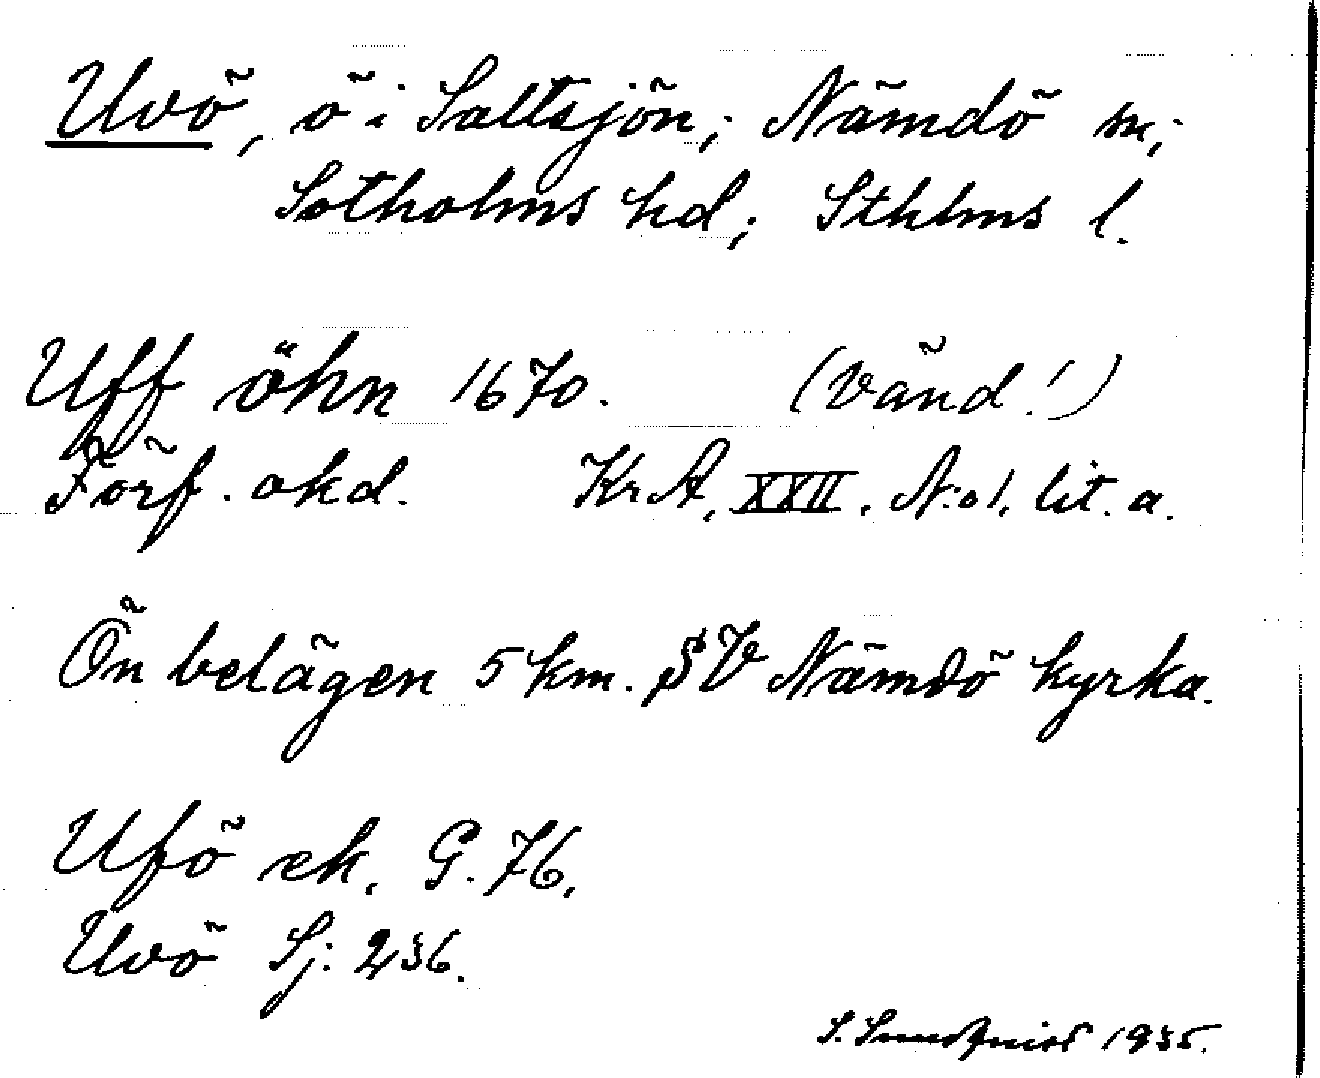 Uvö, ö i Saltsjön; Nämdö sn;
Sotholms hd; Sthlms l.
Uff öhn 1670. (Vänd!)
Förf. okd. KrA, XXII. N:o 1. lit. a.
Ön belägen 5 km. SV Nämdö kyrka.
Ufö ek. G. 76.
Uvö Sj: 236.
S. Sundqvist 1935.